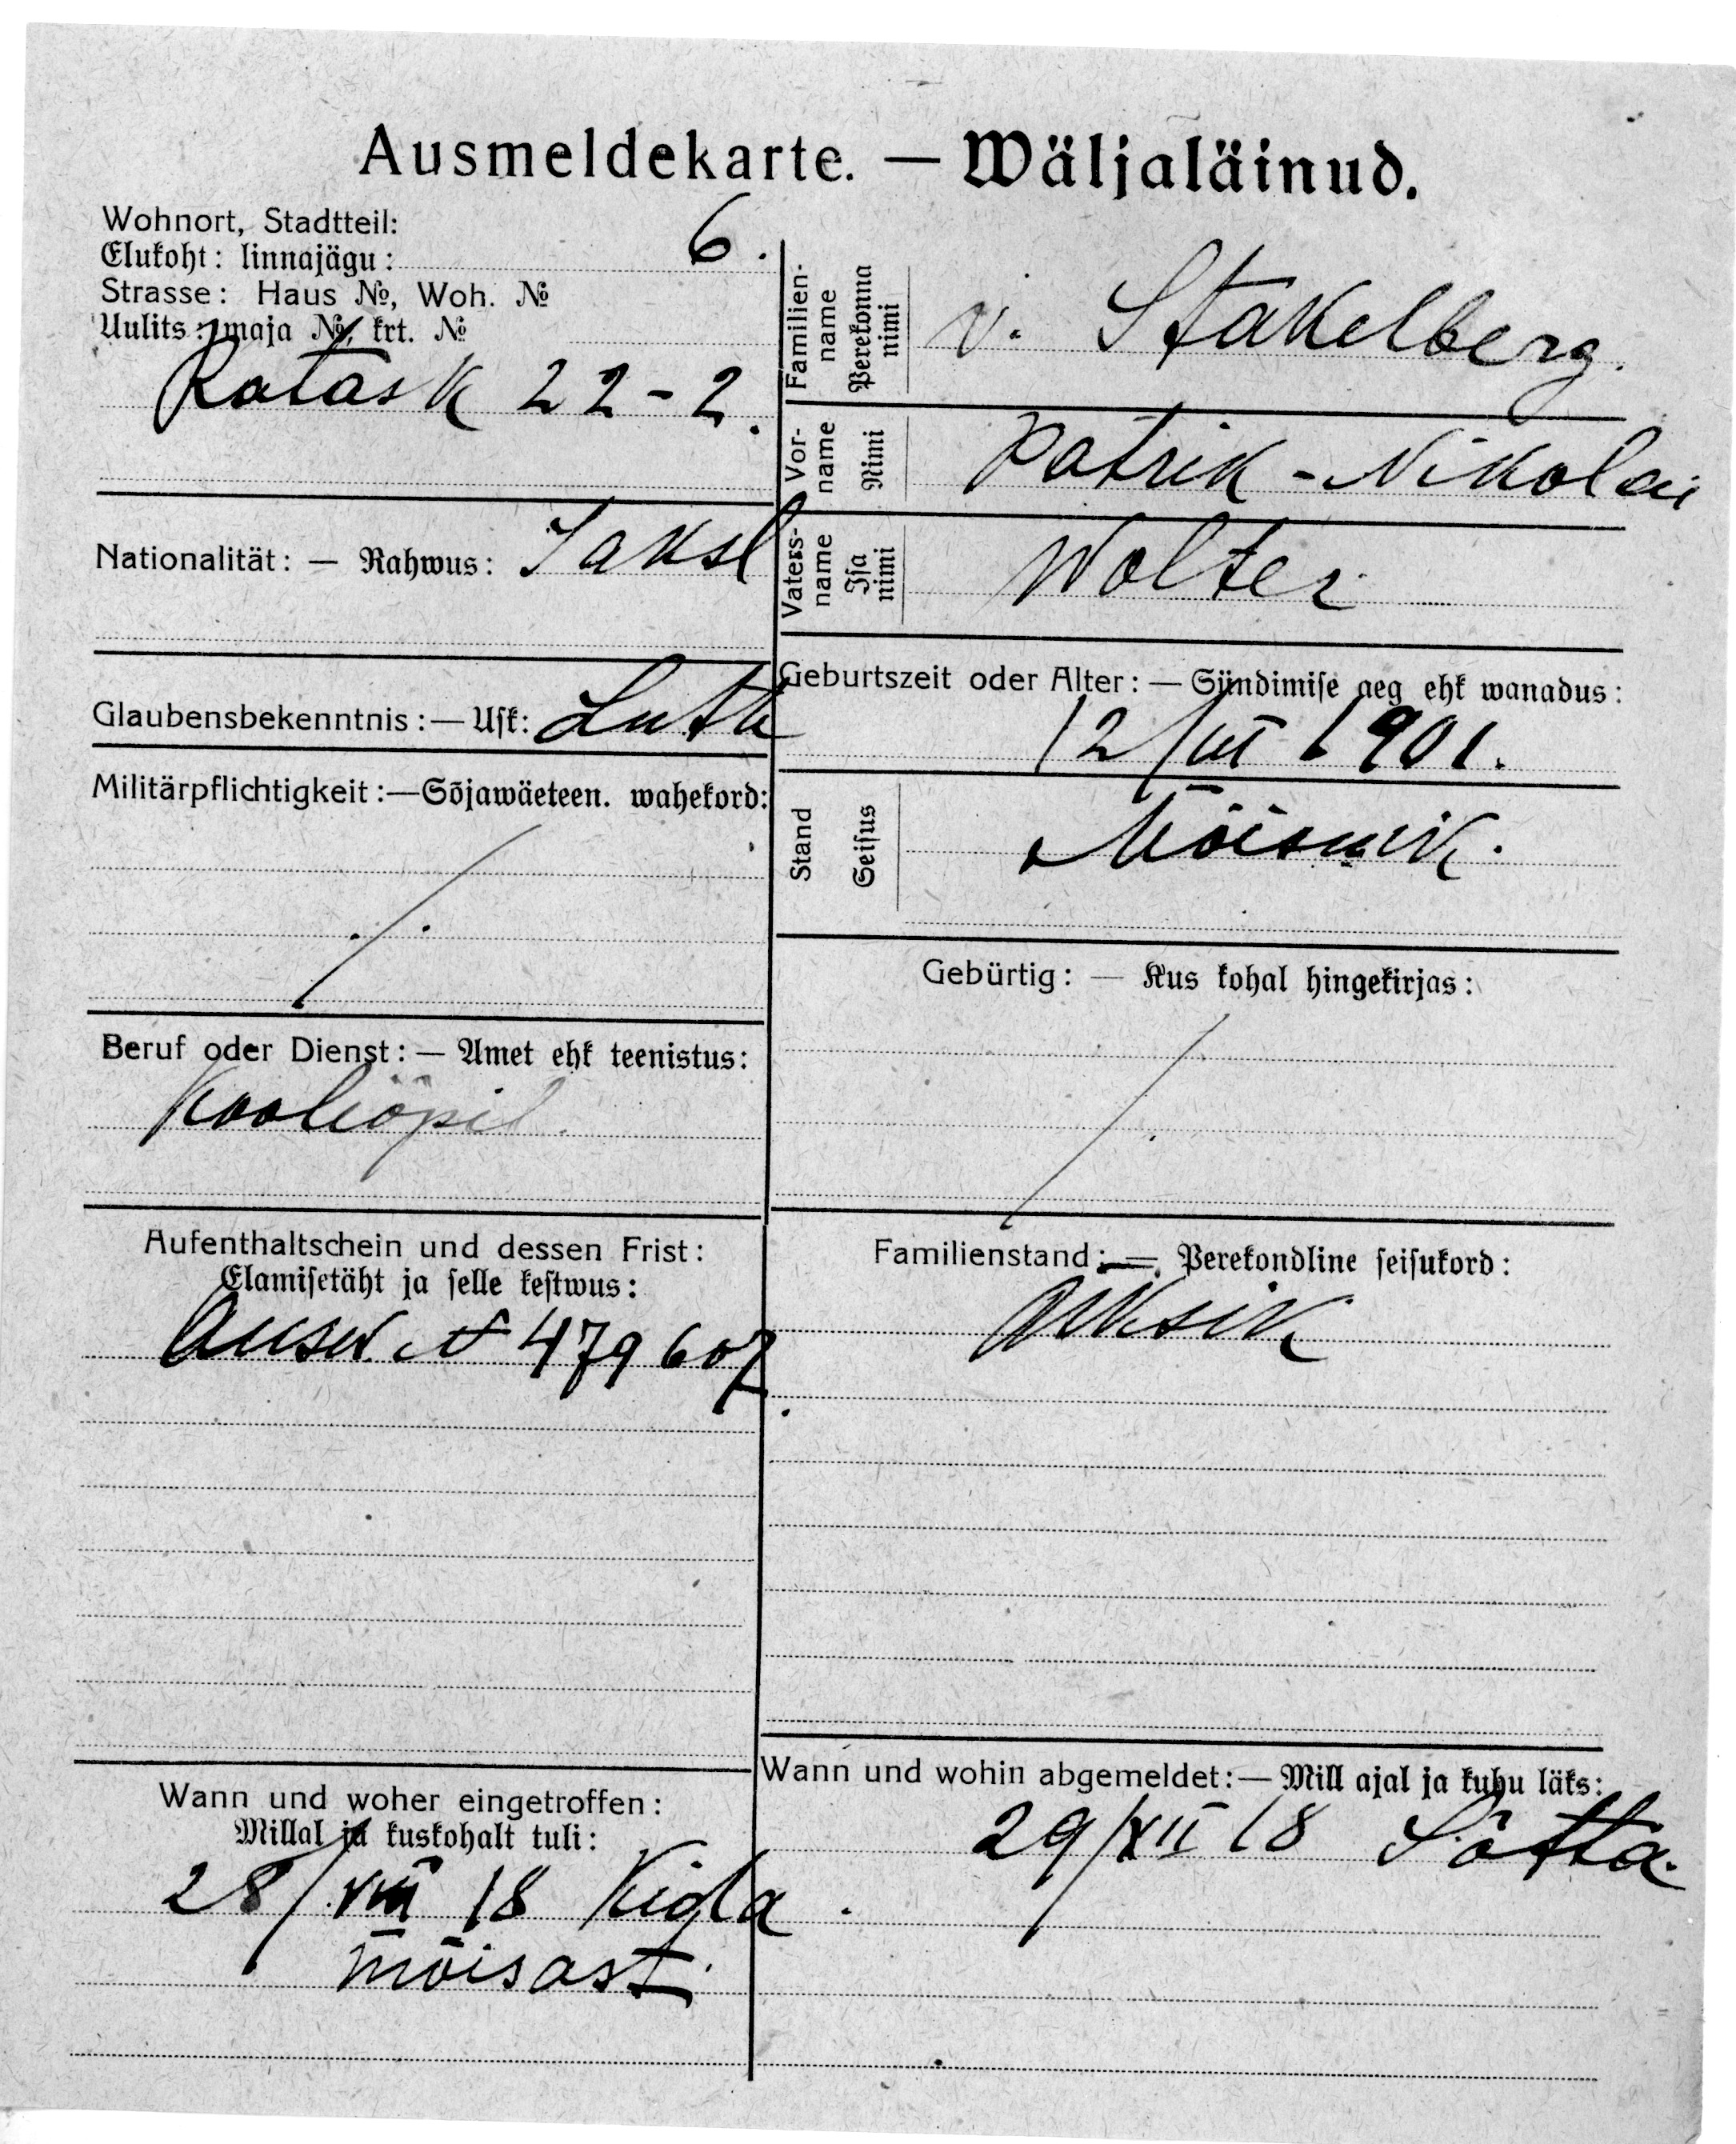 Ausmeldekarte. — Wäljaläinud.
Wohnort, Stadtteil:
Elukoht: linnajägu: 6.
Strasse: Haus №, Woh. №
Uulits: maja №, krt. №
Ratask 22-2.
Familien-
name
Perekonna
nimi
v. Stakelberg.
Vor-
name
Nimi
Patrik - Nikolai
Nationalität: — Rahwus: Saksl
Vaters-
name
Isa
nimi
Wolter
Glaubensbekenntnis: — Usk: Luth
Geburtszeit oder Alter: — Sündimise aeg ehk wanadus:
12/VI 1901.
Militärpflichtigkeit: — Sõjawäeteen. wahekord:
Stand
Seisus
Mõisnik.
Gebürtig: — Kus kohal hingekirjas:
Beruf oder Dienst: — Amet ehk teenistus:
Kooliõpil.
Aufenthaltschein und dessen Frist:
Elamisetäht ja selle kestwus:
Ausw. № 479607.
Familienstand: — Perekondline seisukord:
Üksik
Wann und woher eingetroffen:
Millal ja kuskohalt tuli:
28/VIII 18 Kiola
mõisast.
Wann und wohin abgemeldet: — Mill ajal ja kuhu läks:
29/XII 18